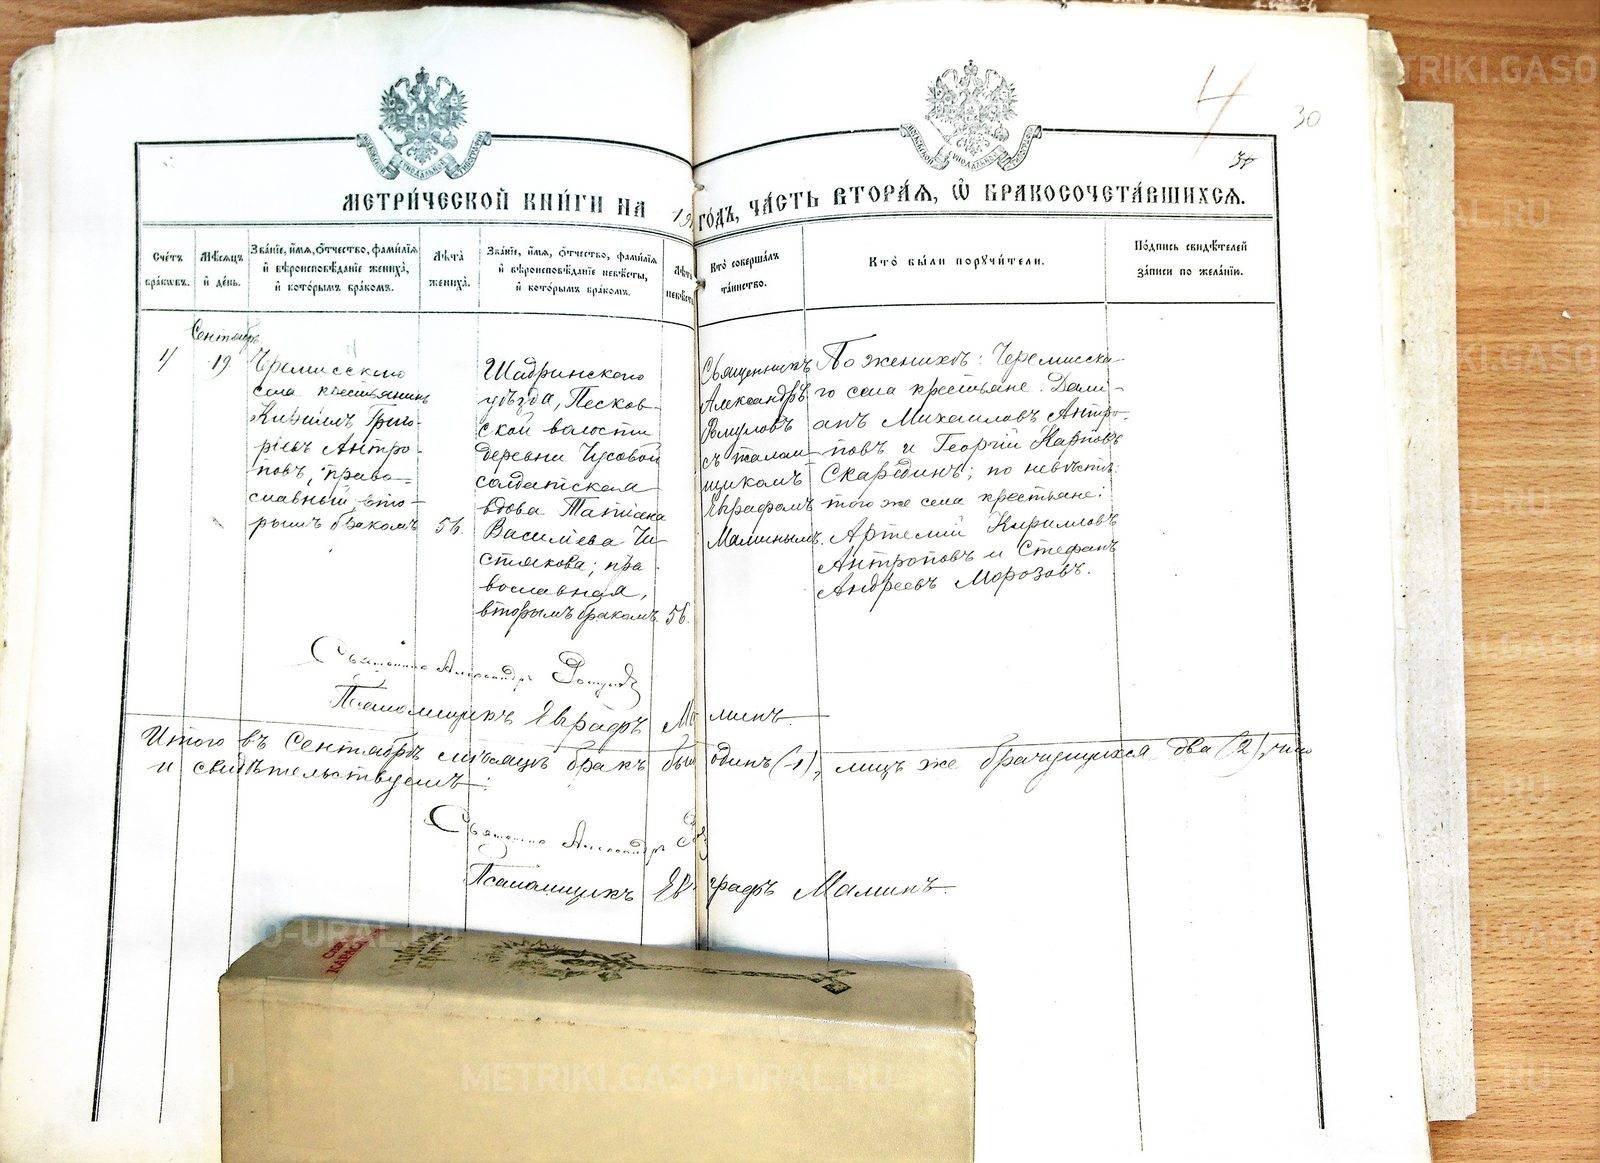 4
30
МЕТРИ́ЧЕСКОЙ КНИ́ГИ НА 19 ГО́ДЪ, ЧА́СТЬ ВТОРА́Я, Ѿ БРАКОСОЧЕТА́ВШИХСЯ.
Сче́тъ бра́ковъ.
Мѣ́сяцъ и҆ де́нь.
Зва́нїе, и҆́мя, ѻ҆́тчество, фами́лїя и҆ вѣроисповѣ́данїе жениха̀, и҆ кото́рымъ бра́комъ.
Лѣ́та жениха̀.
Зва́нїе, и҆́мя, ѻ҆́тчество, фами́лїя и҆ вѣроисповѣ́данїе невѣ́сты, и҆ кото́рымъ бра́комъ.
Лѣ́та невѣ́сты
Кто̀ соверша́лъ та́инство.
Кто̀ бы́ли поручи́тели.
По́дпись свидѣ́телей за́писи по жела́нїи.
Сентябрь
4
19
Черемисскаго
села крестьянинъ
Кириллъ Григо-
рiевъ Антро-
повъ, право-
славный, вто-
рымъ бракомъ
56.
Шадринскаго
уѣзда, Песков-
ской волости
деревни Чусовой
солдатская
вдова Татiана
Василiева Чи-
стякова; пра-
вославная,
вторымъ бракомъ.
56.
Священникъ
Александръ
съ псалом-
щикомъ
Евграфомъ
Маминымъ.
По женихѣ: Черемисска-
го села крестьяне: Дами-
анъ Михаиловъ Антро-
повъ и Георгiй Карповъ
Скарединъ; по невѣстѣ:
того же села крестьяне:
Артемiй Кирилловъ
Антроповъ и Стефанъ
Андреевъ Морозовъ.
Священникъ Александръ
Псаломщикъ Евграфъ Маминъ.
Итого въ Сентябрѣ мѣсяцѣ бракъ былъ одинъ (1), лицъ же брачущихся два (2), что
и свидѣтельствуемъ:
Священникъ Александръ
Псаломщикъ Евграфъ Маминъ.
METRIKI.GASO-URAL.RU